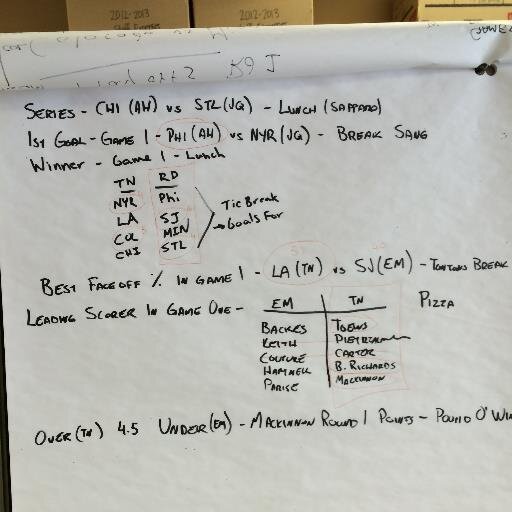 2012-2013
2012-2013
K9 J
SERIES - CHI (AH) vs STL (JG) - LUNCH (SAPPARO)
1ST GOAL - GAME 1 - PHI (AH) vs NYR (JG) - BREAK SANG
WINNER - GAME 1 - LUNCH
TN RD
NYR Phi
LA SJ
COL MIN
CHI STL
Tie Break
→ Goals For
BEST FACEOFF % IN GAME 1 - LA (TN) vs SJ (EM) - TONTONS BREAK
LEADING SCORER IN GAME ONE - EM TN PIZZA
BACKES TOEWS
KEITH
COUTURE CARTER
B. RICHARDS
PARISE MACKINNON
OVER (TN) 4.5 UNDER (EM) - MACKINNON ROUND 1 POINTS - POUND O' WI